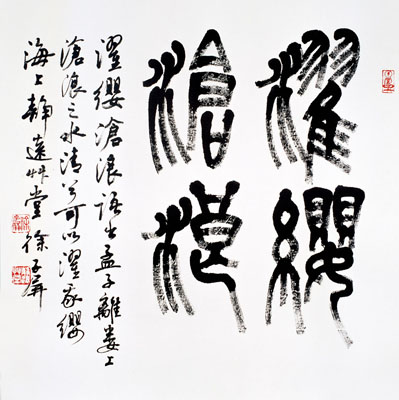 濯纓
滄浪
濯纓滄浪語出孟子離婁上
滄浪之水清兮可以濯我纓
海上靜遠艸堂徐子屏